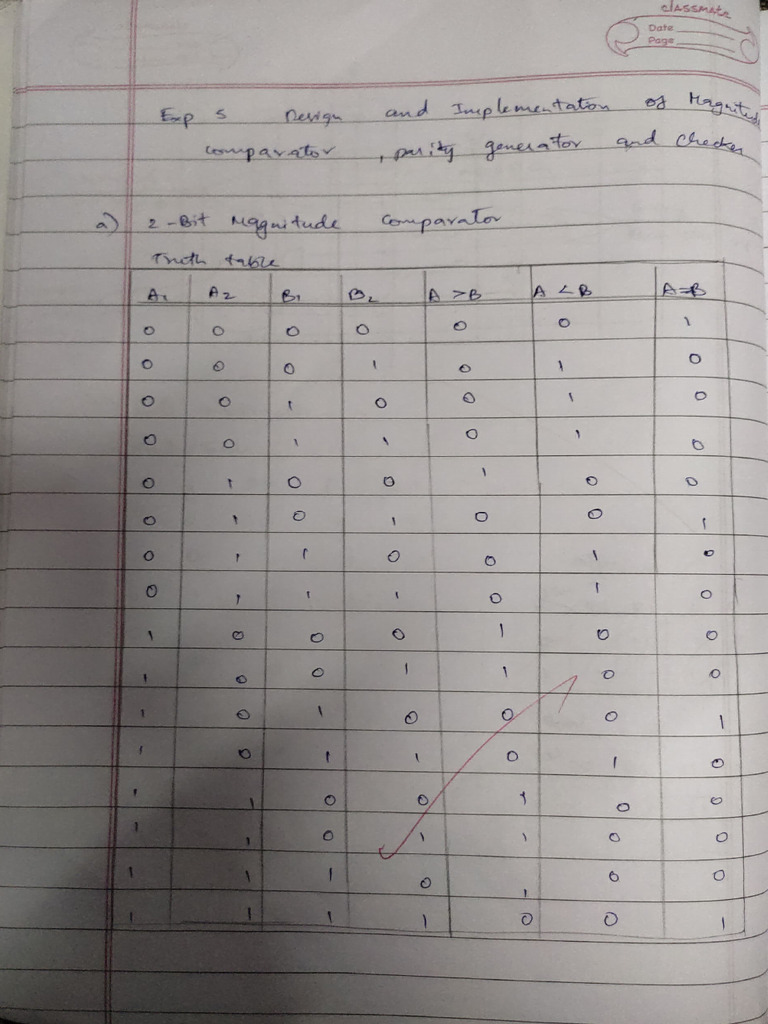 classmate
Date
Page
Exp 5 Design and Implementation of Magnitude
comparator , parity generator and checker
a) 2-Bit Magnitude Comparator
Truth table
A1 A2 B1 B2 A >B A <B A=B
0 0 0 0 0 0 1
0 0 0 1 0 1 0
0 0 1 0 0 1 0
0 0 1 1 0 1 0
0 1 0 0 1 0 0
0 1 0 1 0 0 1
0 1 1 0 0 1 0
0 1 1 1 0 1 0
1 0 0 0 1 0 0
1 0 0 1 1 0 0
1 0 1 0 0 0 1
1 0 1 1 0 1 0
1 1 0 0 1 0 0
1 1 0 1 1 0 0
1 1 1 0 1 0 0
1 1 1 1 0 0 1